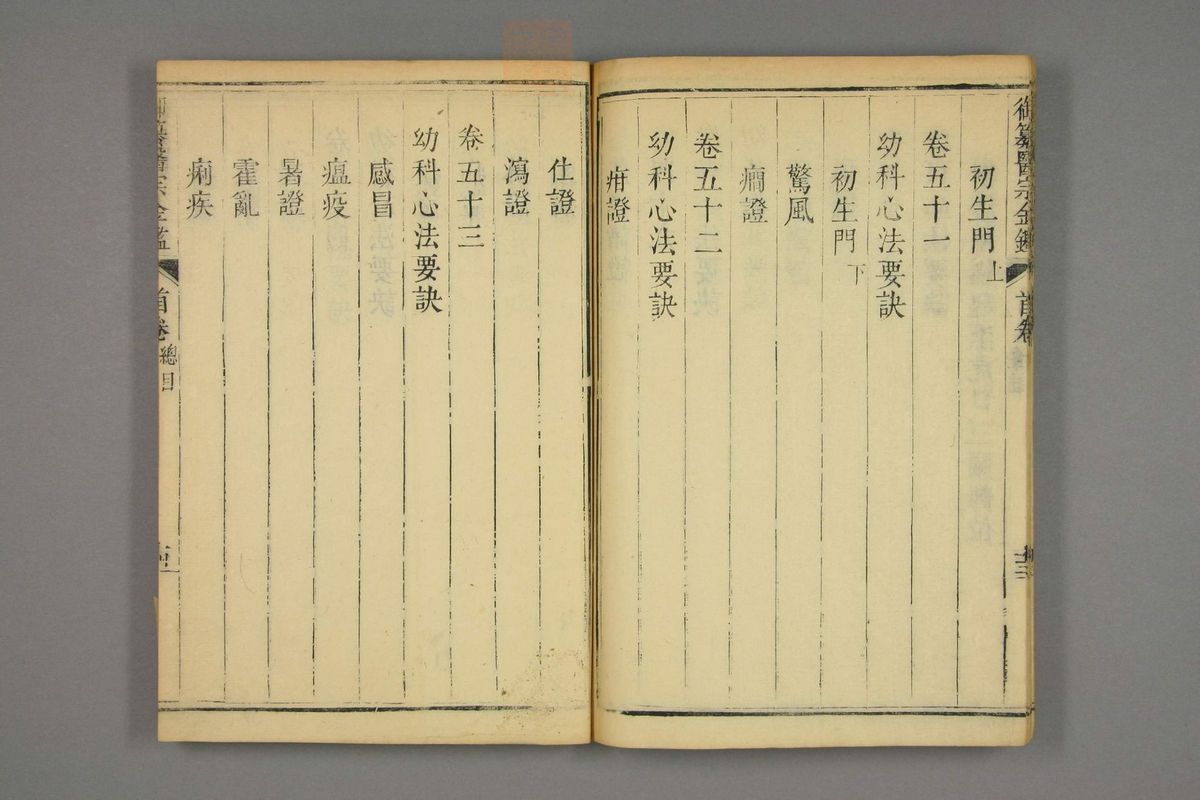 御纂醫宗金鑑 首卷
初生門上
卷五十一
幼科心法要訣
初生門下
驚風
癎證
卷五十二
幼科心法要訣
疳證
仕證
瀉證
卷五十三
幼科心法要訣
感冒
瘟疫
暑證
霍亂
痢疾
御纂醫宗金鑑 首卷 總目